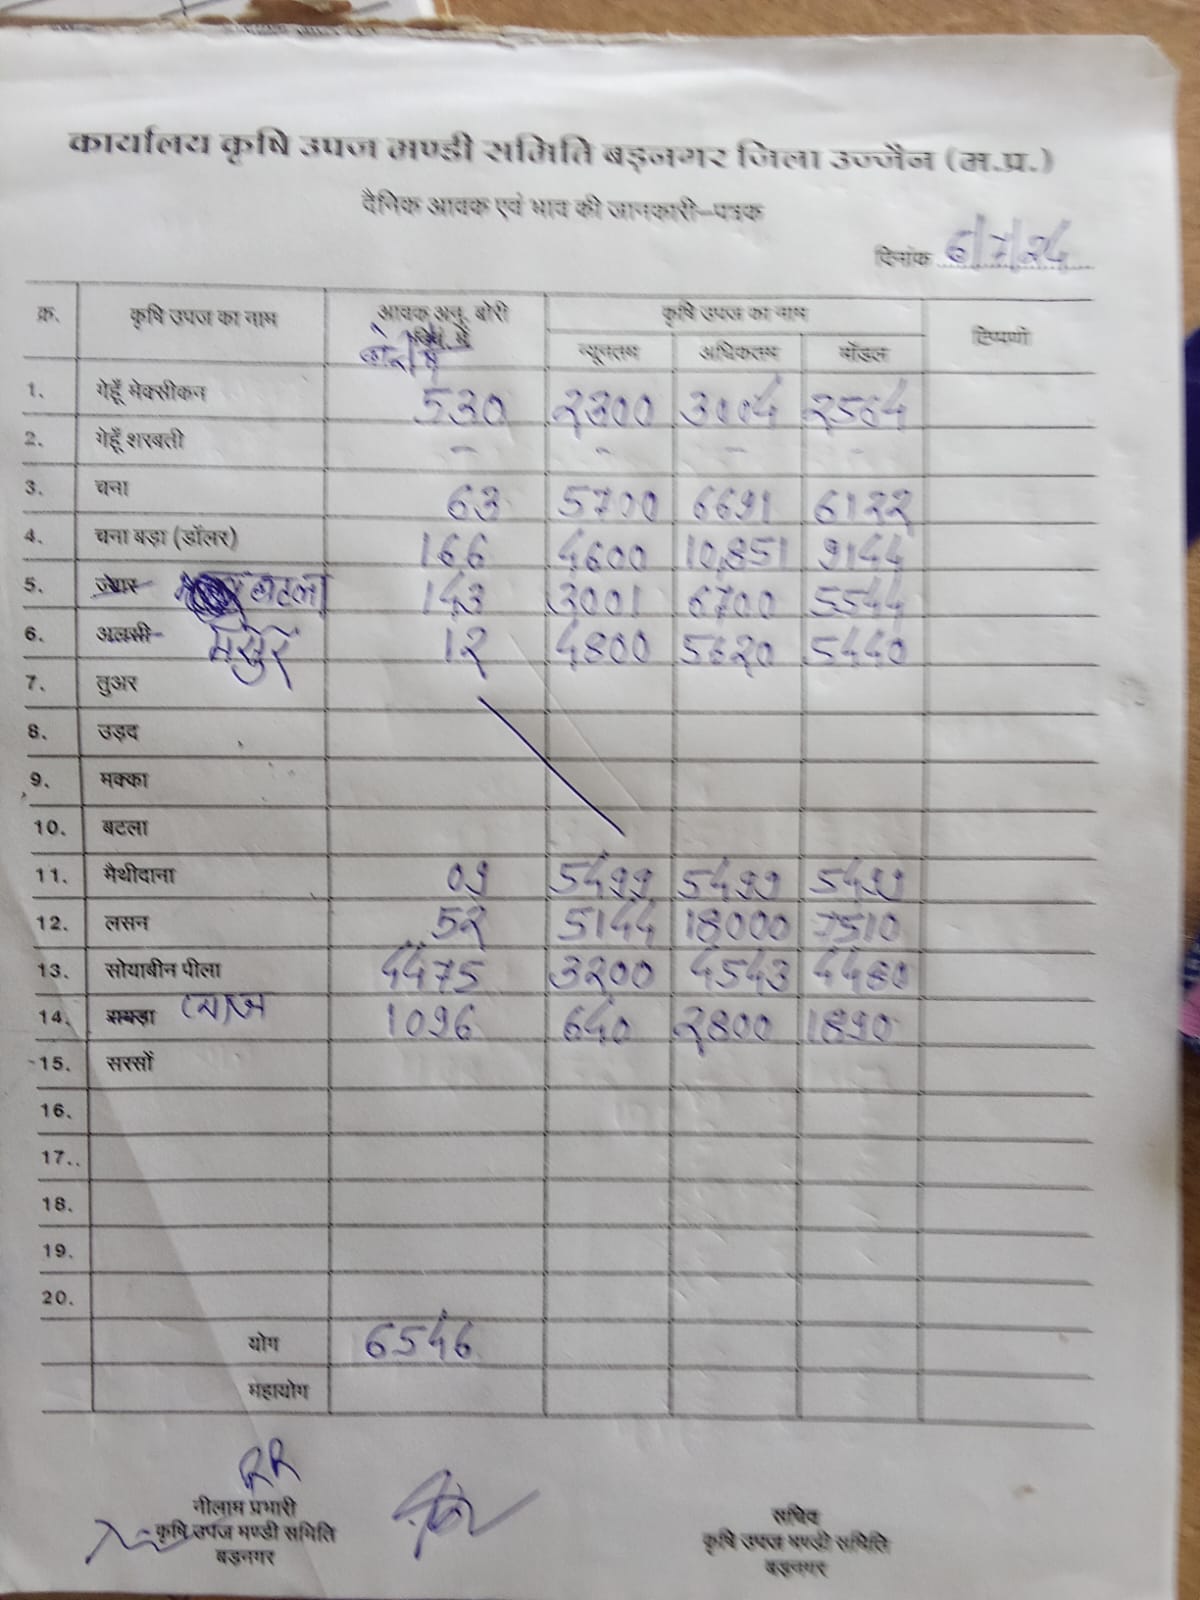 कार्यालय कृषि उपज मण्डी समिति बड़नगर जिला उज्जैन (म.प्र.)
दैनिक आवक एवं भाव की जानकारी–पत्रक
दिनांक 6/7/24
क्र. कृषि उपज का नाम आवक अनु. बोरी कृषि उपज का नाम टिप्पणी
न्यूनतम अधिकतम मॉडल
1. गेहूँ मेक्सीकन 530 2300 3004 2564
2. गेहूँ शरबती - - - -
3. चना 63 5700 6691 6122
4. चना बड़ा (डॉलर) 166 4600 10,851 9144
5. ज्वार बटला 143 3001 6700 5544
6. अलसी मसुर 12 4800 5620 5440
7. तुअर
8. उड़द
9. मक्का
10. बटला
11. मैथीदाना 09 5499 5499 5499
12. लसन 52 5144 18000 7510
13. सोयाबीन पीला 4475 3200 4543 4480
14. प्याज 1096 640 2800 1890
15. सरसों
16.
17..
18.
19.
20.
योग 6546
महायोग
RR
नीलाम प्रभारी सचिव
कृषि उपज मण्डी समिति कृषि उपज मण्डी समिति
बड़नगर बड़नगर